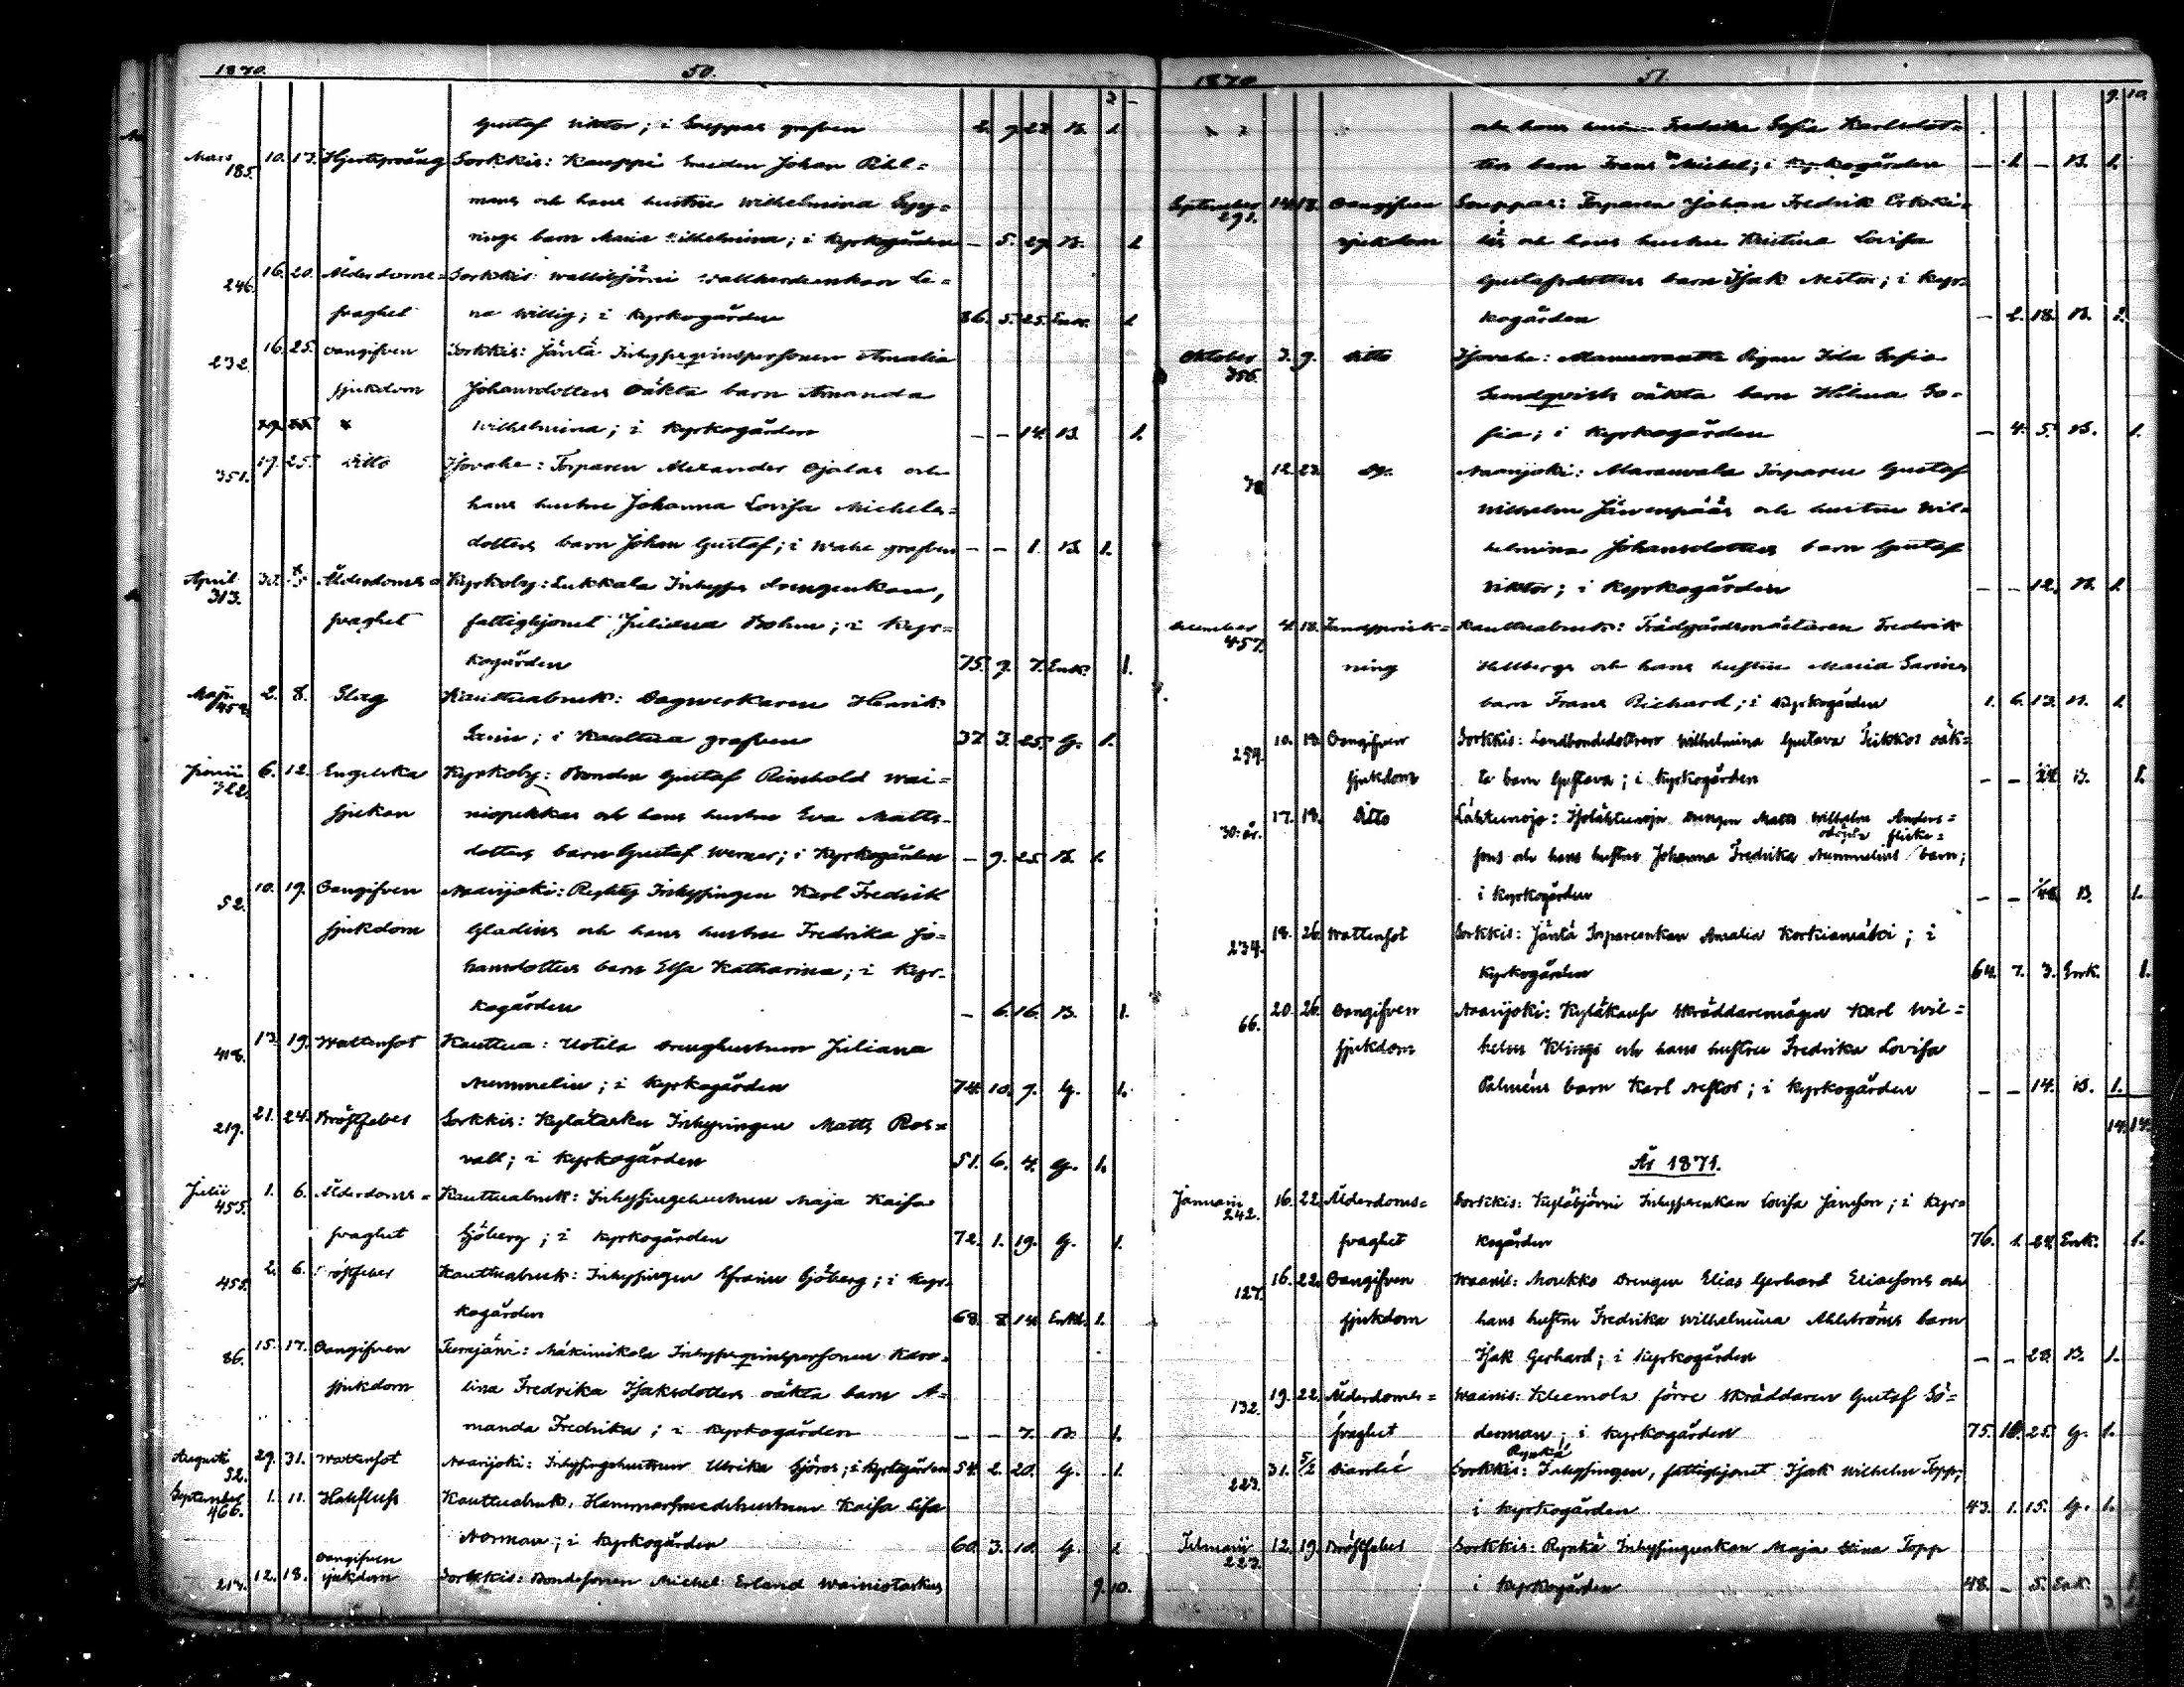 1870. 50.
2 –
Gustaf Viktor; i Souppas grafven 2. 9. 23. B. 1.
Mars 185. 10. 17. Hjertsprång Sorkkis: Kauppi Smeden Johan Pihl=
mans och hans hustru Wilhelmina
barn Maria Wilhelmina; i Kyrkogården – 5. 29. B. 1
246. 16. 20. Ålderdoms= Sorkkis: Wallherdeenkan Le=
svaghet na Willig; i Kyrkogården 86. 5. 25. Enk. 1
232. 16. 25. Oangifven Sorkkis: Jäntä Inhysesqvinspersonen Amalia
sjukdom Johansdotters oäkta barn Amanda
Wilhelmina; i Kyrkogården – – 14. B. 1.
351. 19. 25. Ditto Isovahe: Torparen Alexander Ojalas och
hans hustru Johanna Lovisa Michels=
dotters barn Johan Gustaf; i Wahe grafven – – 1. B. 1.
April 313. 30. Ålderdoms= Kyrkoby: Lukkala Inhyses drengenkan,
svaghet fattighjonet Juliana Bohm; i Kyr=
kogården 75. 9. 7. Enk. 1.
Maji 452. 2. 8. Slag Kauttuabruk: Dagverkaren Henrik
Sarin; i Kauttua grafven 37. 3. 25. G. 1.
Junii 322. 6. 12. Engelska Kyrkoby: Bonden Gustaf Reinhold Wai=
sjukan niopekkas och hans hustru Eva Matts=
dotters barn Gustaf Werner; i Kyrkogården – 9. 25. B. 1.
52. 10. 19. Oangifven Naarijoki: Inhysingen Karl Fredrik
sjukdom Gladins och hans hustru Fredrika Jo=
hansdotters barn Elsa Katharina; i Kyr=
kogården – 6. 16. B. 1.
418. 13. 19. Wattensot Kauttua: Uotila Drenghustrun Juliana
Nummelin; i Kyrkogården 74. 10. 9. G. 1.
219. 21. 24. Bröstfeber Sorkkis: Kylätarkus Inhysingen Matts Ros=
vall; i Kyrkogården 51. 6. 4. G. 1.
Julii 455. 1. 6. Ålderdoms= Kauttuabruk: Inhysingehustrun Maja Kaisa
svaghet Sjöberg; i Kyrkogården 72. 1. 19. G. 1.
455. 2. 6. Bröstfeber Kauttuabruk: Inhysingen Efraim Sjöberg; i Kyr=
kogården 68. 8. 14. Enkl. 1.
86. 15. 17. Oangifven Turajärvi: Mäkimikola Inhysesqvinspersonen Karo=
sjukdom lina Fredrika Isaksdotters oäkta barn A=
manda Fredrika; i Kyrkogården – – 7. B. 1.
Augusti 52. 29. 31. Wattensot Naarijoki: Inhysingshustrun Ulrika Sjöros; i Kyrkogården 54. 2. 20. G. 1.
September 466. 1. 11. Halsfluss Kauttuabruk: Hammarsmedshustrun Kaisa Lisa
Norman; i Kyrkogården 60. 3. 10. G. 1
12. 18. Oangifven
sjukdom Sorkkis: Bondesonen Michel Erland Wainiotarkus
9. 10.
1870 51.
9. 10.
och hans hustru Fredrika Sofia Karlsdot=
ters barn Frans Michel; i Kyrkogården – 1. – B. 1.
September 291. 14. 18. Oangifven Souppas: Torparen Johan Fredrik Erkki=
sjukdom läs och hans hustru Kristina Lovisa
Gustafsdotters barn Isak Nestor; i Kyr=
kogården – 2. 18. B. 1.
Oktober 356. 3. 9. Ditto Isovahe: Pigan Ida Sofia
Lundqvists oäkta barn Hilma So=
fia; i Kyrkogården – 4. 5. B. 1.
12. 23. Do. Naarijoki: Torparen Gustaf
Wilhelm Järvenpääs och hustru Wil=
helmina Johansdotters barn Gustaf
Viktor; i Kyrkogården – – 12. B. 1.
December 457. 4. 18. Kauttuabruk: Trädgårdsmästaren Fredrik
ning Hallbergs och hans hustru Maria Sarins
barn Frans Richard; i Kyrkogården 1. 6. 13. B. 1
254. 10. 18. Oangifven Sorkkis: Landbondedottren Wilhelmina Gustava Seikkos oäk=
sjukdom ta barn Gustava; i Kyrkogården – – B. 1.
17. 18. Ditto Läktunoja: Isoläktunoja Drengen Matts Wilhelm Anders=
odöpta flicke=
sons och hans hustrus Johanna Fredrika Nummelins barn;
i Kyrkogården – – B. 1.
234. 18. 26. Wattensot Sorkkis: Jäntä Torpareenkan Amalia Korkiamäki; i
Kyrkogården 64. 7. 3. Enk. 1.
66. 20. 26. Oangifven Naarijoki: Kyläkauso Skräddaremågen Karl Wil=
sjukdom helm Klings och hans hustru Fredrika Lovisa
Palméns barn Karl Nestor; i Kyrkogården – – 14. B. 1.
14. 14.
År 1871.
Januari 242. 16. 22. Ålderdoms= Sorkkis: Kyläbjörni Inhysesenkan Lovisa Jansson; i Kyr=
svaghet kogården 76. 1. 24. Enk. 1.
127. 16. 22. Oangifven Waanis: Moukko Drengen Elias Gerhard Eliassons och
sjukdom hans hustru Fredrika Wilhelmina Ahlströms barn
Isak Gerhard; i Kyrkogården – – 28. B. 1.
132. 19. 22. Ålderdoms= Waanis: Kleemola förre Skräddaren Gustaf Sö=
svaghet derman; i Kyrkogården 75. 10. 25. G. 1.
Rynkä
223. 31. 5/2 Diarrhé Sorkkis: Inhysingen, fattighjonet Isak Wilhelm Topp;
i Kyrkogården 43. 1. 15. G. 1.
Februarii 223. 12. 19. Bröstfeber Sorkkis: Rynkä Inhysingeenkan Maja Stina Topp
i Kyrkogården 48. – 5. Enk. 1.